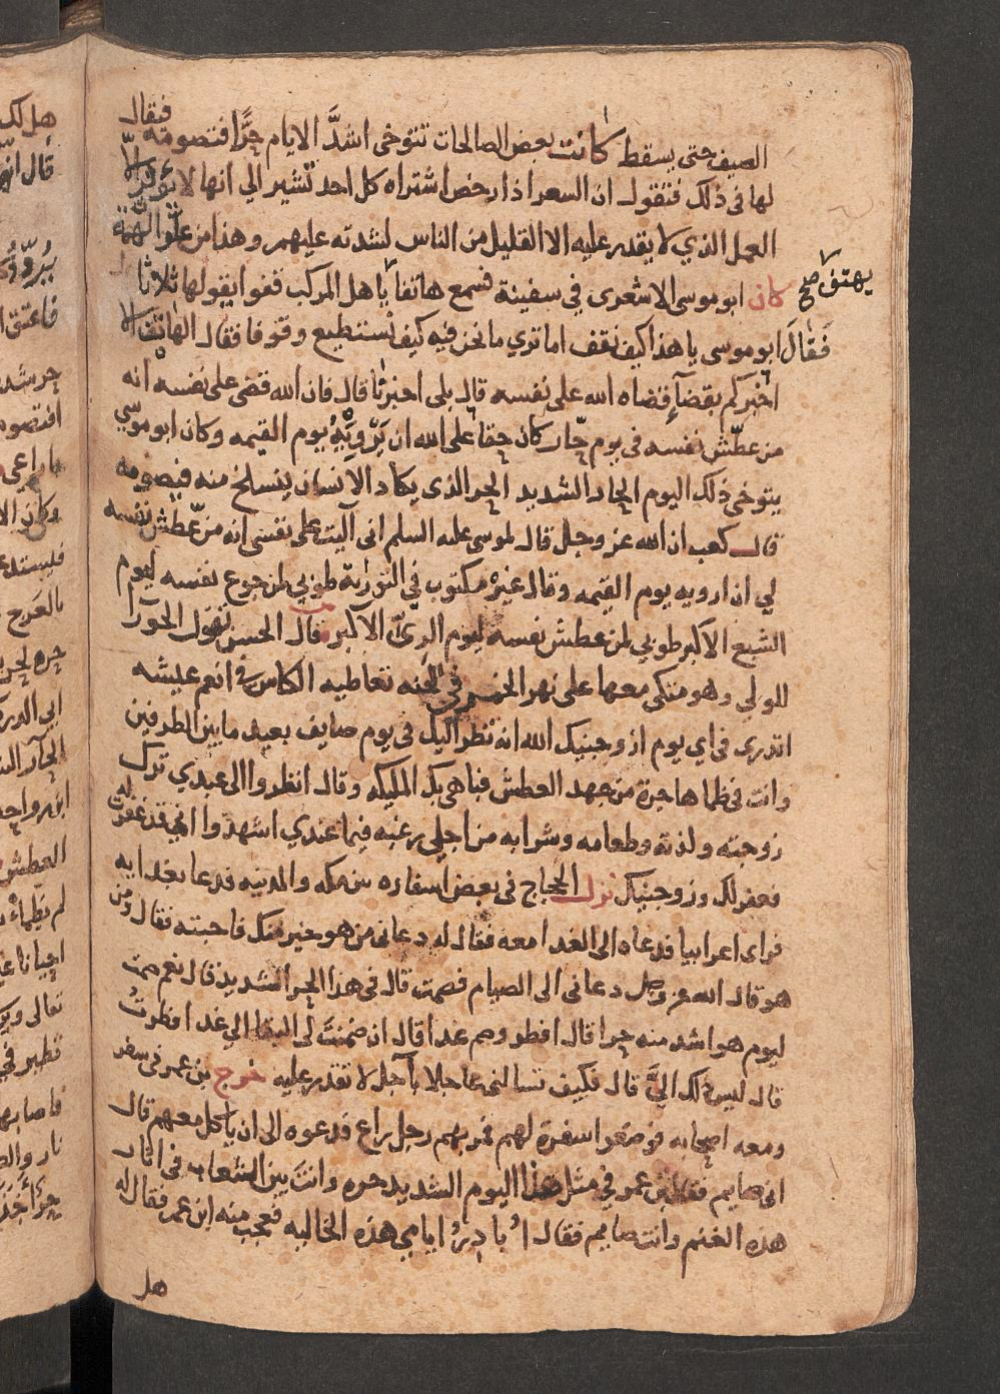 الصيف حتى يسقط كانت بعض الصالحات تتوخى اشدَّ الايام حرًّا فتصومه فيقال
لها فى ذلك فتقول ان السعر اذا رخص اشتراه كل احد تشير الي انها لا تؤثر الا
العمل الذي لا يقدر عليه الا القليل من الناس لشدته عليهم وهذا من علو الهمة
كان ابو موسى الاشعرى في سفينة فسمع هاتفا يا اهل المركب قفوا يقولها ثلاثا
يهتف صح
فَقَالَ ابو موسى يا هذا كيف نقف اما تري ما نحن فيه كيف نستطيع وقوفا فقال الهاتف الا
اخبركم بقضآءٍ قضاه الله على نفسه قال بلى اخبرنا قال فان الله قضى على نفسه انه
من عطّش نفسه فى يوم حّار كان حقا على الله ان يَرْوِيَهُ يوم القيمه وكان ابو موسي
يتوخى ذلك اليوم الحار الشديد الحر الذى يكاد الانسان ينسلخ منه فيصومه
قال كعب ان الله عز وجل قال لموسى عليه السلم انى آليت على نفسى انه من عطّش نفسه
لي ان ارويه يوم القيمه وقال غيره مكتوب في التوراة طوبي لمن جوع نفسه ليوم
الشبع الاكبر طوبي لمن عطش نفسه ليوم الري الاكبر قال الحسن تقول الحورآ
للولي وهو متكي معها على نهر الخمر فى الجنه تعاطيه الكاس في انعم عيشه
اتدرى فى اي يوم زوجنيك الله انه نظر اليك فى يوم صايف بعيد ما بين الطرفين
وانت فى ظما هاجرة من جهد العطش فباهى بك المليكه وقال انظروا الى عبدي ترك
زوجته ولذته وطعامه وشرابه من اجلي رغبه فيما عندي اشهدوا اني قد غفرت له
فغفر لك وزوجنيك نزل الحجاج فى بعض اسفاره بين مكه والمدينه فدعا بغدايه
فراى اعرابيا فدعاه الى الغدا معه فقال له دعانى من هو خير منك فاجبته فقال ومن
هو قال الله عز وجل دعانى الى الصيام فصمت قال فى هذا الحر الشديد قال نعم صمت
ليوم هو اشد منه حرا قال افطر وصم غدا قال ان ضمنتَ لى البقا الى غد افطرتُ
قال ليس ذلك اليَّ قال فكيف تسالنى عاجلا بآجل لا تقدر عليه خرج بن عمر فى سفر
ومعه اصحابه فوضعوا سفرة لهم فمر بهم رجل راع فدعوه الى ان ياكل معهم قال
انى صايم فقال ابن عمر في مثل هذا اليوم الشديد حره وانتَ بين الشعاب فى اثار
هذه الغنم وانت صايم فقال اُبادِرُ ايامي هذه الخاليه فعجب منه ابن عمر فقال له
هل